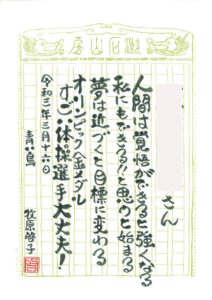 漱石山房
さん
人間は覚悟ができると強くなる
私にもできる!!と思うと始まる
夢は近づくと目標に変わる
オリンピック金メダル
すごい体操選手大丈夫!
令和三年三月十六日
青い鳥
牧原啓子